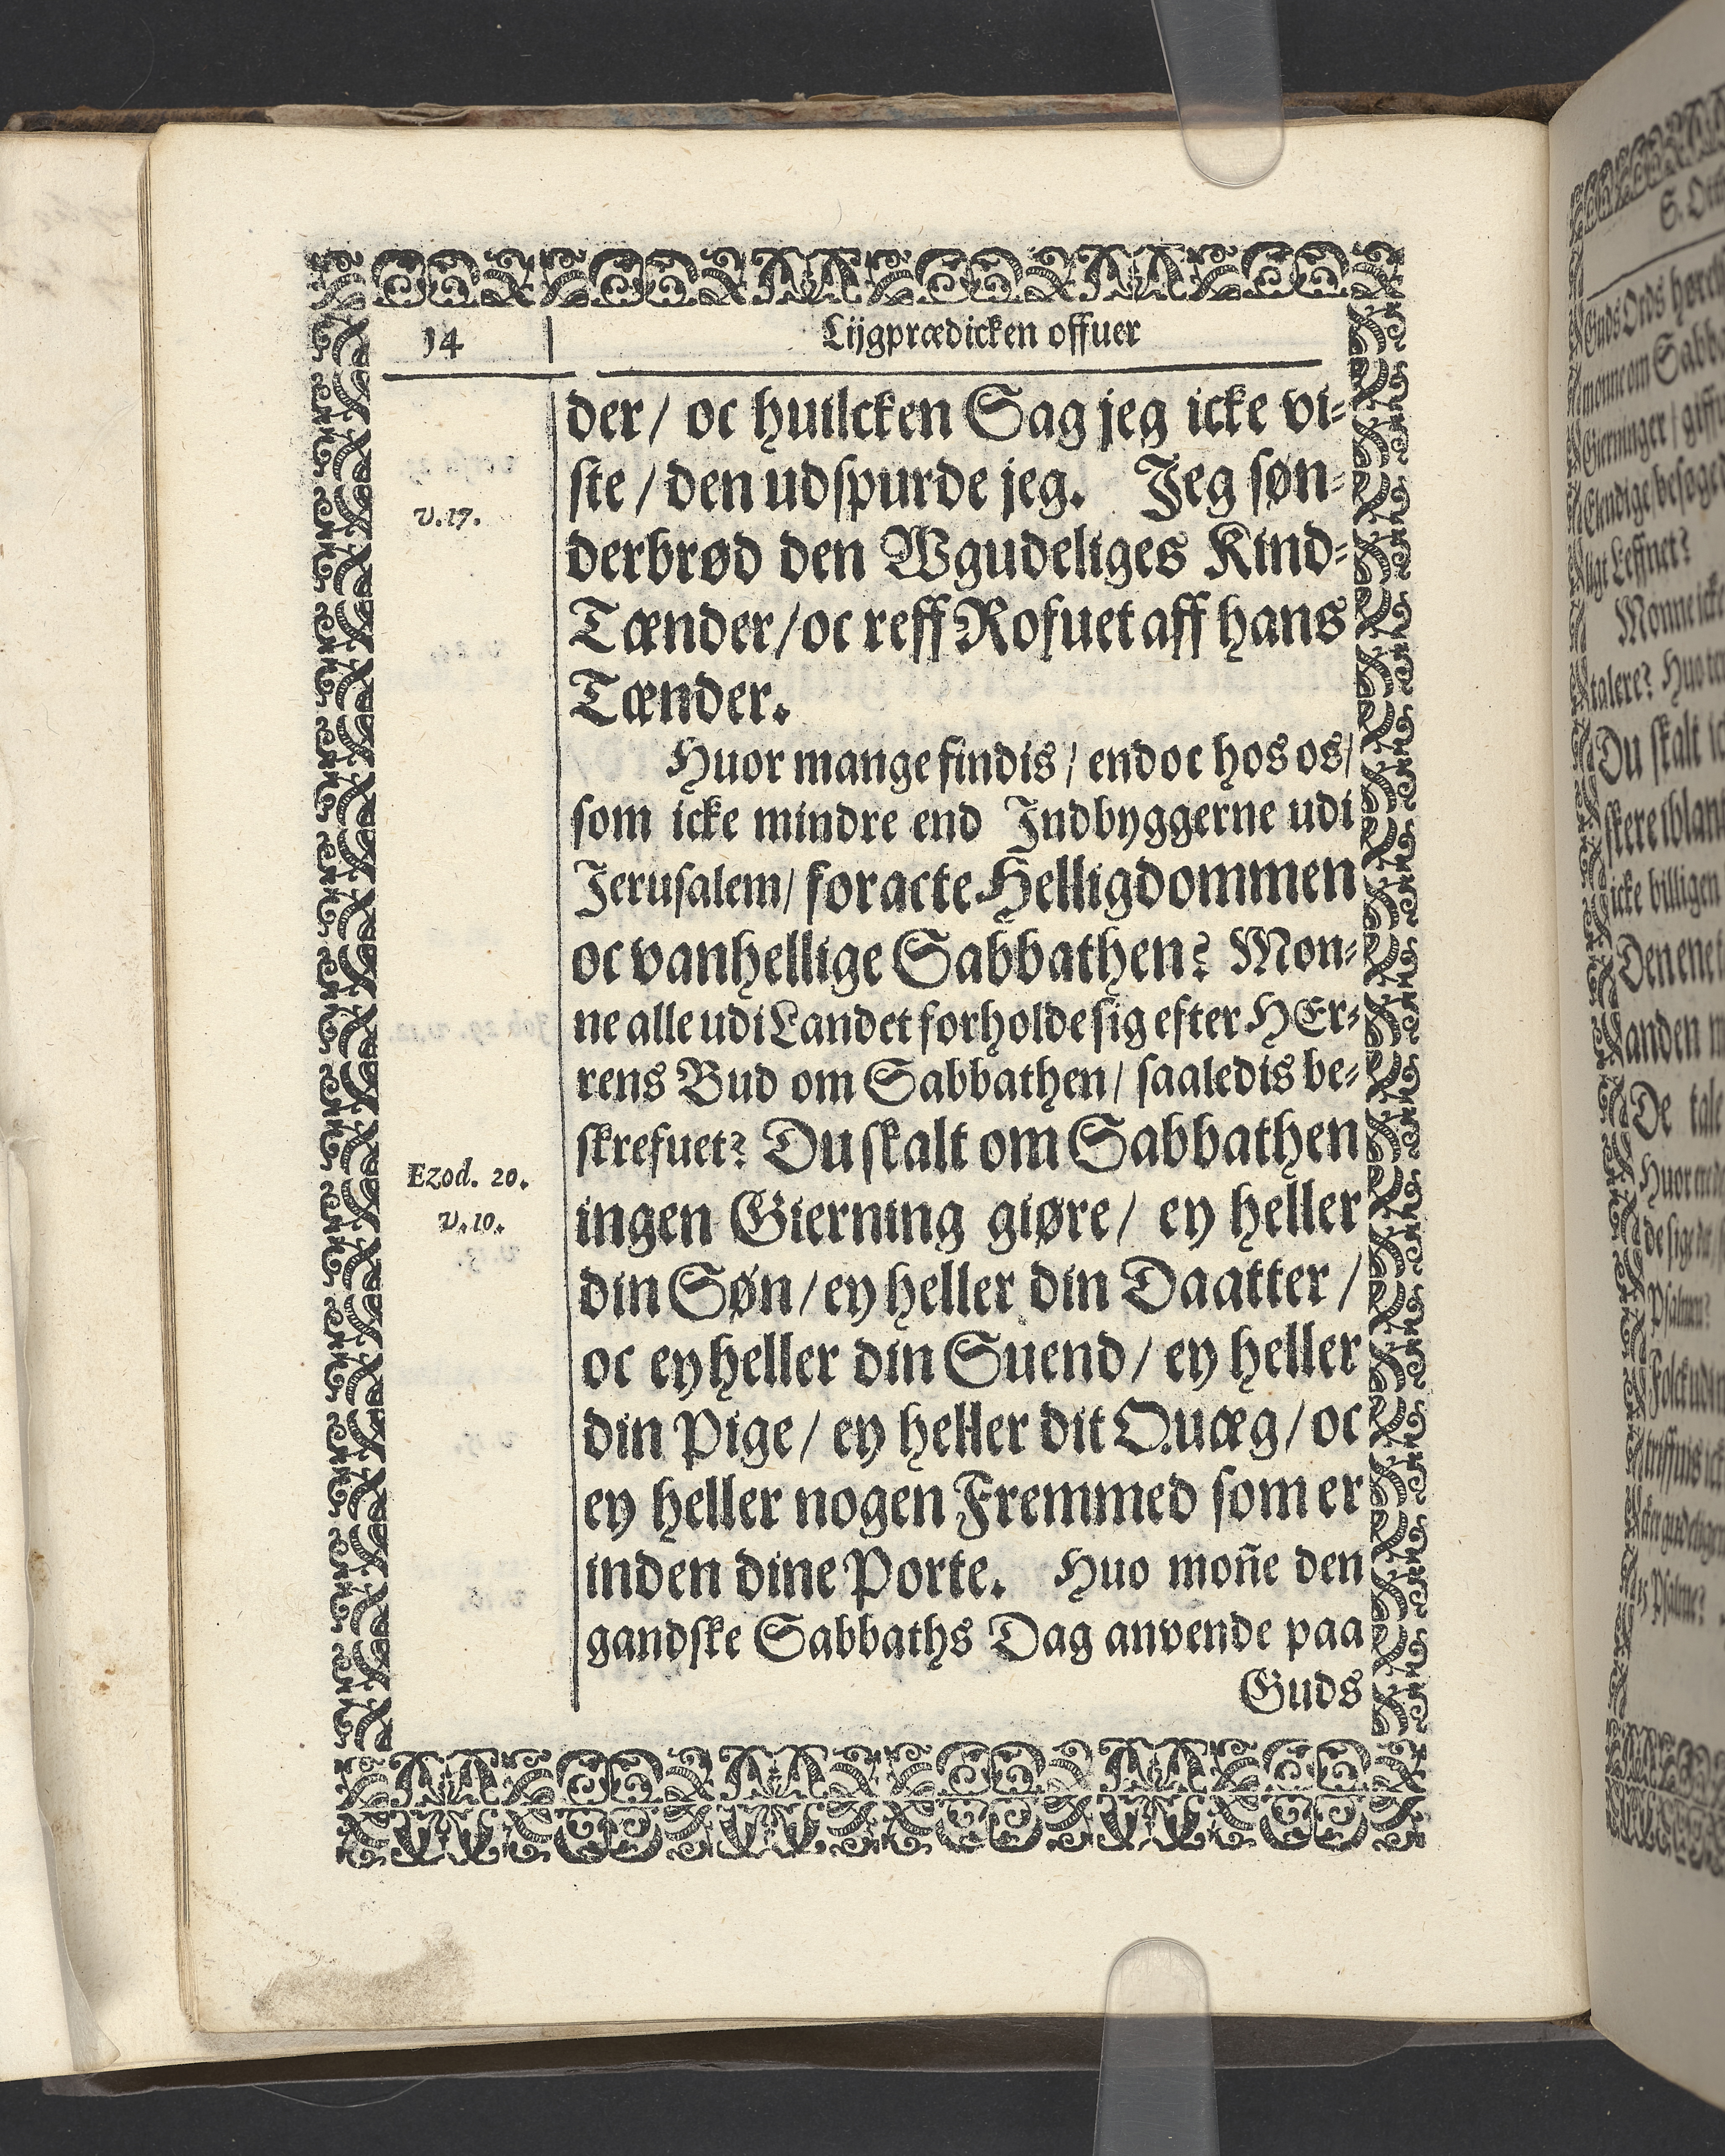 14
Lijgprædicken offuer
der/ oc huilcken Sag jeg icke vi-
ste / den udspurde jeg. Jeg søn-
v. 17.
derbrød den Wgudeliges Kind-
Tænder/oc reff Rofuet aff hans
Tænder.
Huor mange findis / endoc hos os/
som icke mindre end Indbyggerne udi
Jerusalem/ foracte Helligdommen
oc vanhellige Sabbathen? Mon-
ne alle udi Landet forholde sig efter HEr-
rens Bud om Sabbathen/ saaledis be-
skrefuet? Du skalt om Sabbathen
Ezod. 20.
v. 10.
ingen Gierning giøre/ ey heller
din Søn/ey heller din Daatter/
oc ey heller din Suend/ ey heller
din Pige/ ey heller dit Quæg/ oc
ey heller nogen Fremmed som er
inden dine Porte. Huo mon̄e den
gandske Sabbaths Dag anvende paa
Guds
Du skalt
icke billigen
anden
De tale
Psalmen?
Psalme?